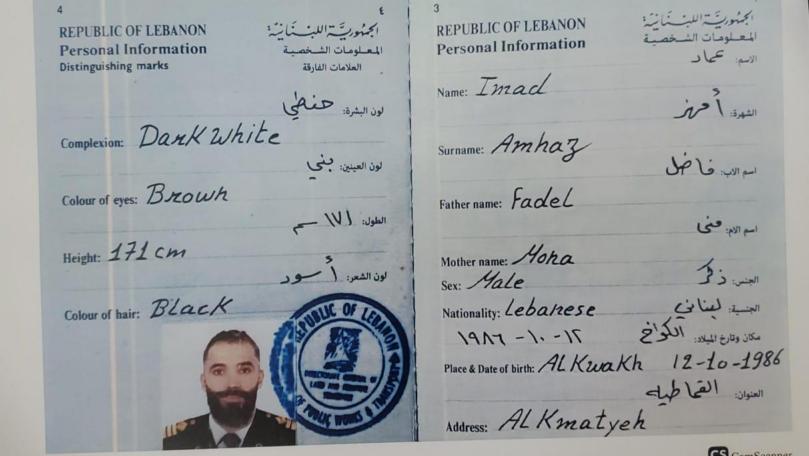 4
٤
REPUBLIC OF LEBANON
الجمهوريَّة اللبنَانيَّة
Personal Information
المعلومات الشخصية
Distinguishing marks
العلامات الفارقة
لون البشرة: حنطي
Complexion: Dark White
لون العينين: بني
Colour of eyes: Brown
الطول: ١٧١ سم
Height: 171 cm
لون الشعر: أسود
Colour of hair: Black
REPUBLIC OF LEBANON
OF PUBLIC WORKS & TRANSPORT
3
REPUBLIC OF LEBANON
الجمهوريَّة اللبنَانيَّة
Personal Information
المعلومات الشخصية
الاسم: عماد
Name: Imad
الشهرة: أمهز
Surname: Amhaz
اسم الاب: فاضل
Father name: Fadel
اسم الام: منى
Mother name: Mona
الجنس: ذكر
Sex: Male
الجنسية: لبناني
Nationality: Lebanese
مكان وتاريخ الميلاد: الكواخ ١٢-١٠-١٩٨٦
Place & Date of birth: AL Kwakh 12-10-1986
العنوان: القماطيه
Address: AL Kmatyeh
CS CamScanner